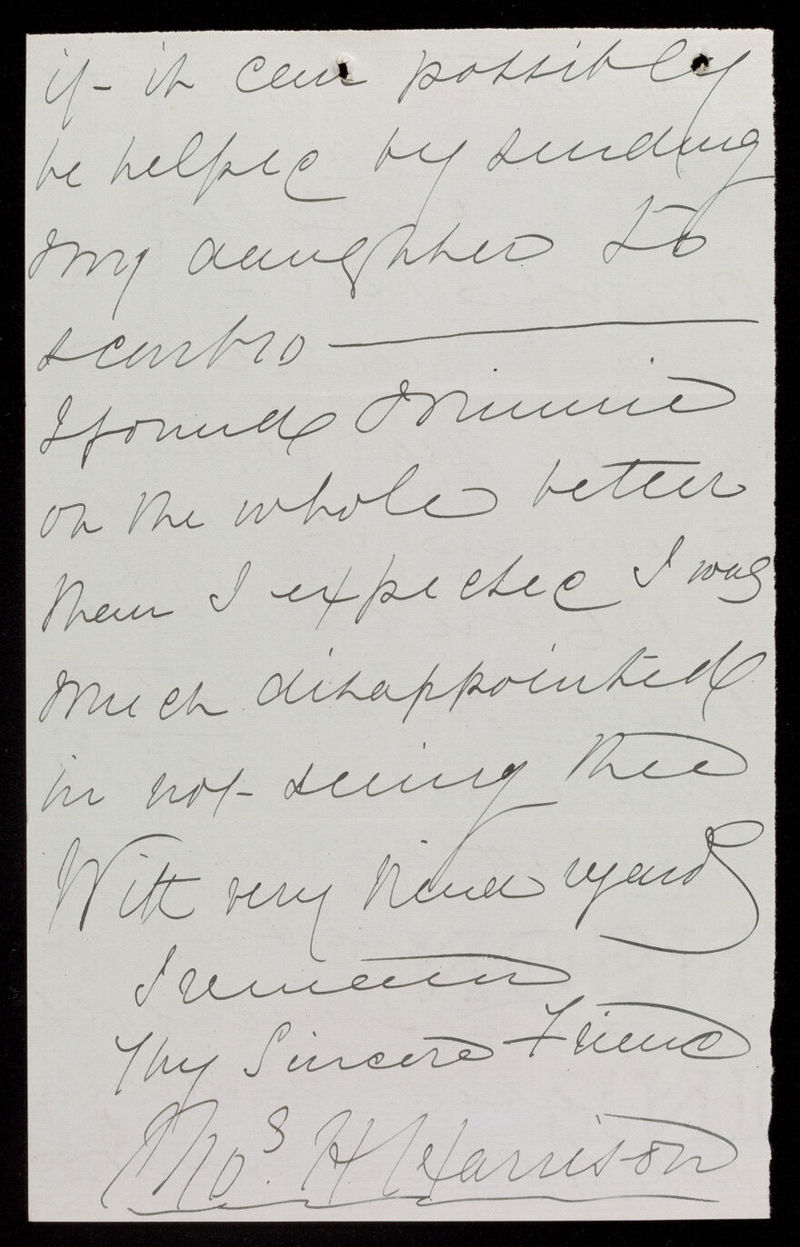 if it can possibly
be helped by sending
my daughter to
scarbro —
I found Minnie
on the whole better
than I expected I was
much disappointed
in not seeing thee
With very kind regards
I remain
Thy Sincere Friend
Thos. H Harrison